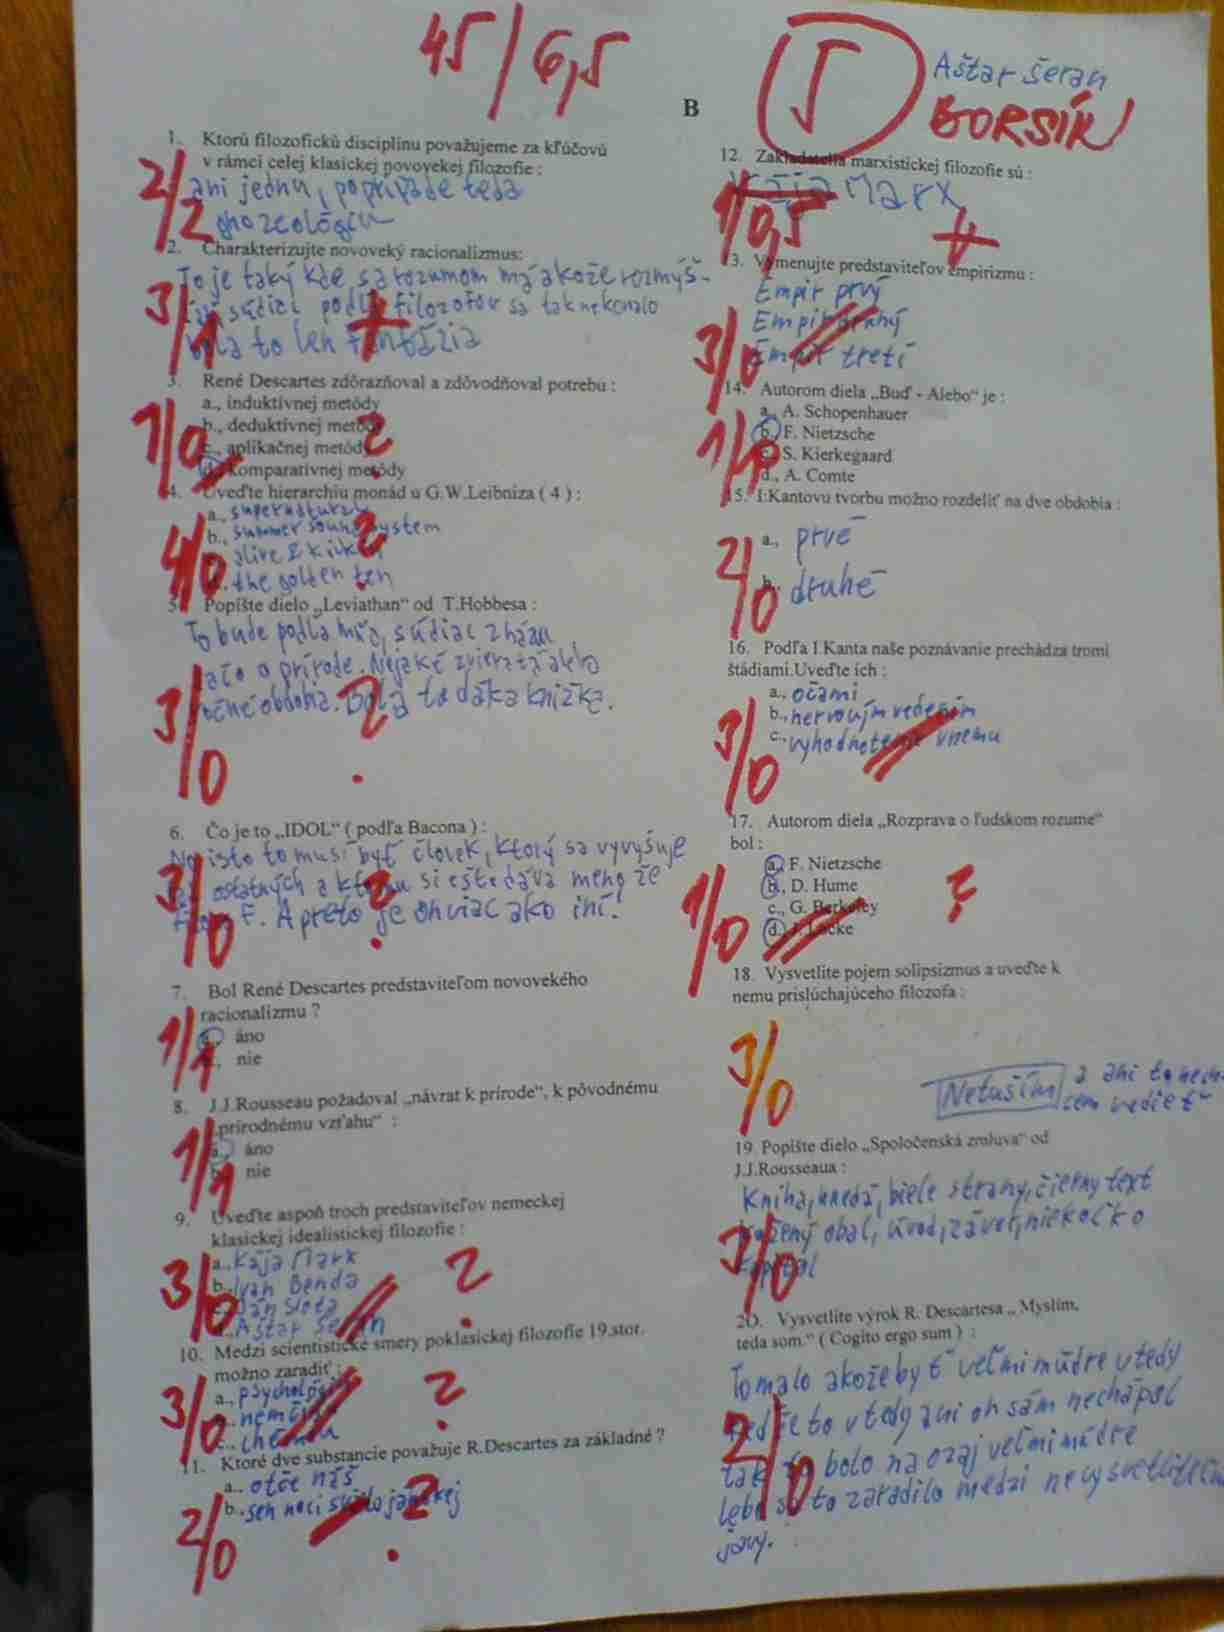 45/6,5
5
Aštar Šeran
BORSÍK
B
1. Ktorú filozofickú disciplínu považujeme za kľúčovú
v rámci celej klasickej novovekej filozofie :
2/2
ani jednu, popripade teda
gnozeológiu
2. Charakterizujte novoveký racionalizmus:
To je taký kde sa rozumom má akože rozmýš-
súdiac podľa filozofov sa tak nekonalo
bola to len fantázia
3/1
3. René Descartes zdôrazňoval a zdôvodňoval potrebu :
a., induktívnej metódy
b., deduktívnej metódy
c., aplikačnej metódy
d., komparatívnej metódy
1/0
?
4. Uveďte hierarchiu monád u G.W.Leibniza ( 4 ) :
a., supernatural
b., summer sound system
alive & kickin
the golden ten
4/0
?
5. Popíšte dielo „Leviathan“ od T.Hobbesa :
To bude podľa mňa, súdiac z názvu
dačo o prírode. Nejaké zvieratá alebo
ročné obdobia. Bola to dáka knižka.
3/0
?
6. Čo je to „IDOL“ ( podľa Bacona ) :
No isto to musí byť človek, ktorý sa vyvyšuje
ostatných a ktorému si ešte dáva meno že
F. A preto je on viac ako iní!
3/0
?
7. Bol René Descartes predstaviteľom novovekého
racionalizmu ?
a., áno
b., nie
1/1
8. J.J.Rousseau požadoval „návrat k prírode“, k pôvodnému
„prírodnému vzťahu“ :
a., áno
b., nie
1/1
9. Uveďte aspoň troch predstaviteľov nemeckej
klasickej idealistickej filozofie :
a., Kája Marx
b., Ivan Benda
c., Ján Slota
d., Aštar Šeran
3/0
?
10. Medzi scientistické smery poklasickej filozofie 19.stor.
možno zaradiť :
a., psychológia
b., nemčina
c., chémia
3/0
?
11. Ktoré dve substancie považuje R.Descartes za základné ?
a., otče náš
b., sen noci svätojánskej
2/0
?
12. Zakladatelia marxistickej filozofie sú :
Kája Marx
1/0,5
13. Vymenujte predstaviteľov empirizmu :
Empír prvý
Empír druhý
Empír tretí
3/0
14. Autorom diela „Buď - Alebo“ je :
a., A. Schopenhauer
b., F. Nietzsche
c., S. Kierkegaard
d., A. Comte
15. I.Kantovu tvorbu možno rozdeliť na dve obdobia :
a., prvé
b., druhé
2/0
16. Podľa I.Kanta naše poznávanie prechádza tromi
štádiami.Uveďte ich :
a., očami
b., nervovým vedením
c., vyhodnotenie vnemu
3/0
17. Autorom diela „Rozprava o ľudskom rozume“
bol :
a., F. Nietzsche
b., D. Hume
c., G. Berkeley
d., J. Locke
1/0
?
18. Vysvetlite pojem solipsizmus a uveďte k
nemu prislúchajúceho filozofa :
3/0
Netuším a ani to nech-
cem vedieť
19. Popíšte dielo „Spoločenská zmluva“ od
J.J.Rousseaua :
Kniha, hnedá, biele strany, čierny text
kožený obal, úvod, záver, niekoľko
kapitol
3/0
20. Vysvetlite výrok R. Descartesa „ Myslím,
teda som.“ ( Cogito ergo sum ) :
To malo akože byť veľmi múdre vtedy
keďže to vtedy ani on sám nechápal
tak to bolo na ozaj veľmi múdre
lebo sa to zaradilo medzi nevysvetliteľné
javy.
2/0